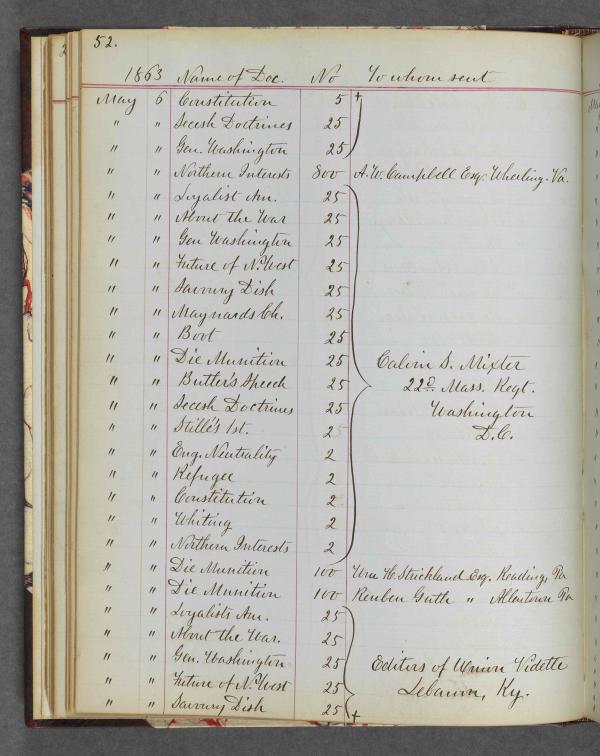 52.
1863 Name of Doc. No To whom sent
May 6 Constitution 5 +
" " Secesh Doctrines 25
" " Gen. Washington 25
" " Northern Interests 800 A. W. Campbell Esq. Wheeling. Va.
" " Loyalist Am. 25
" " About the War 25
" " Gen Washington 25
" " Future of N. West 25
" " Savoury Dish 25
" " Maynards Ch. 25
" " Boot 25
" " Die Munition 25 Calvin S. Mixter
" " Butler's Speech 25 22D. Mass. Regt.
" " Secesh Doctrines 25 Washington
" " Stillé's 1st. 2 D.C.
" " Eng. Neutrality 2
" " Refugee 2
" " Constitution 2
" " Whiting 2
" " Northern Interests 2
" " Die Munition 100 Wm H. Strickland Esq. Reading, Pa
" " Die Munition 100 Reuben Guth " Allentown Pa
" " Loyalists Am. 25
" " About the War. 25
" " Gen. Washington 25 Editors of Union Vidette
" " Future of N. West 25 Lebanon, Ky.
" " Savoury Dish 25 +